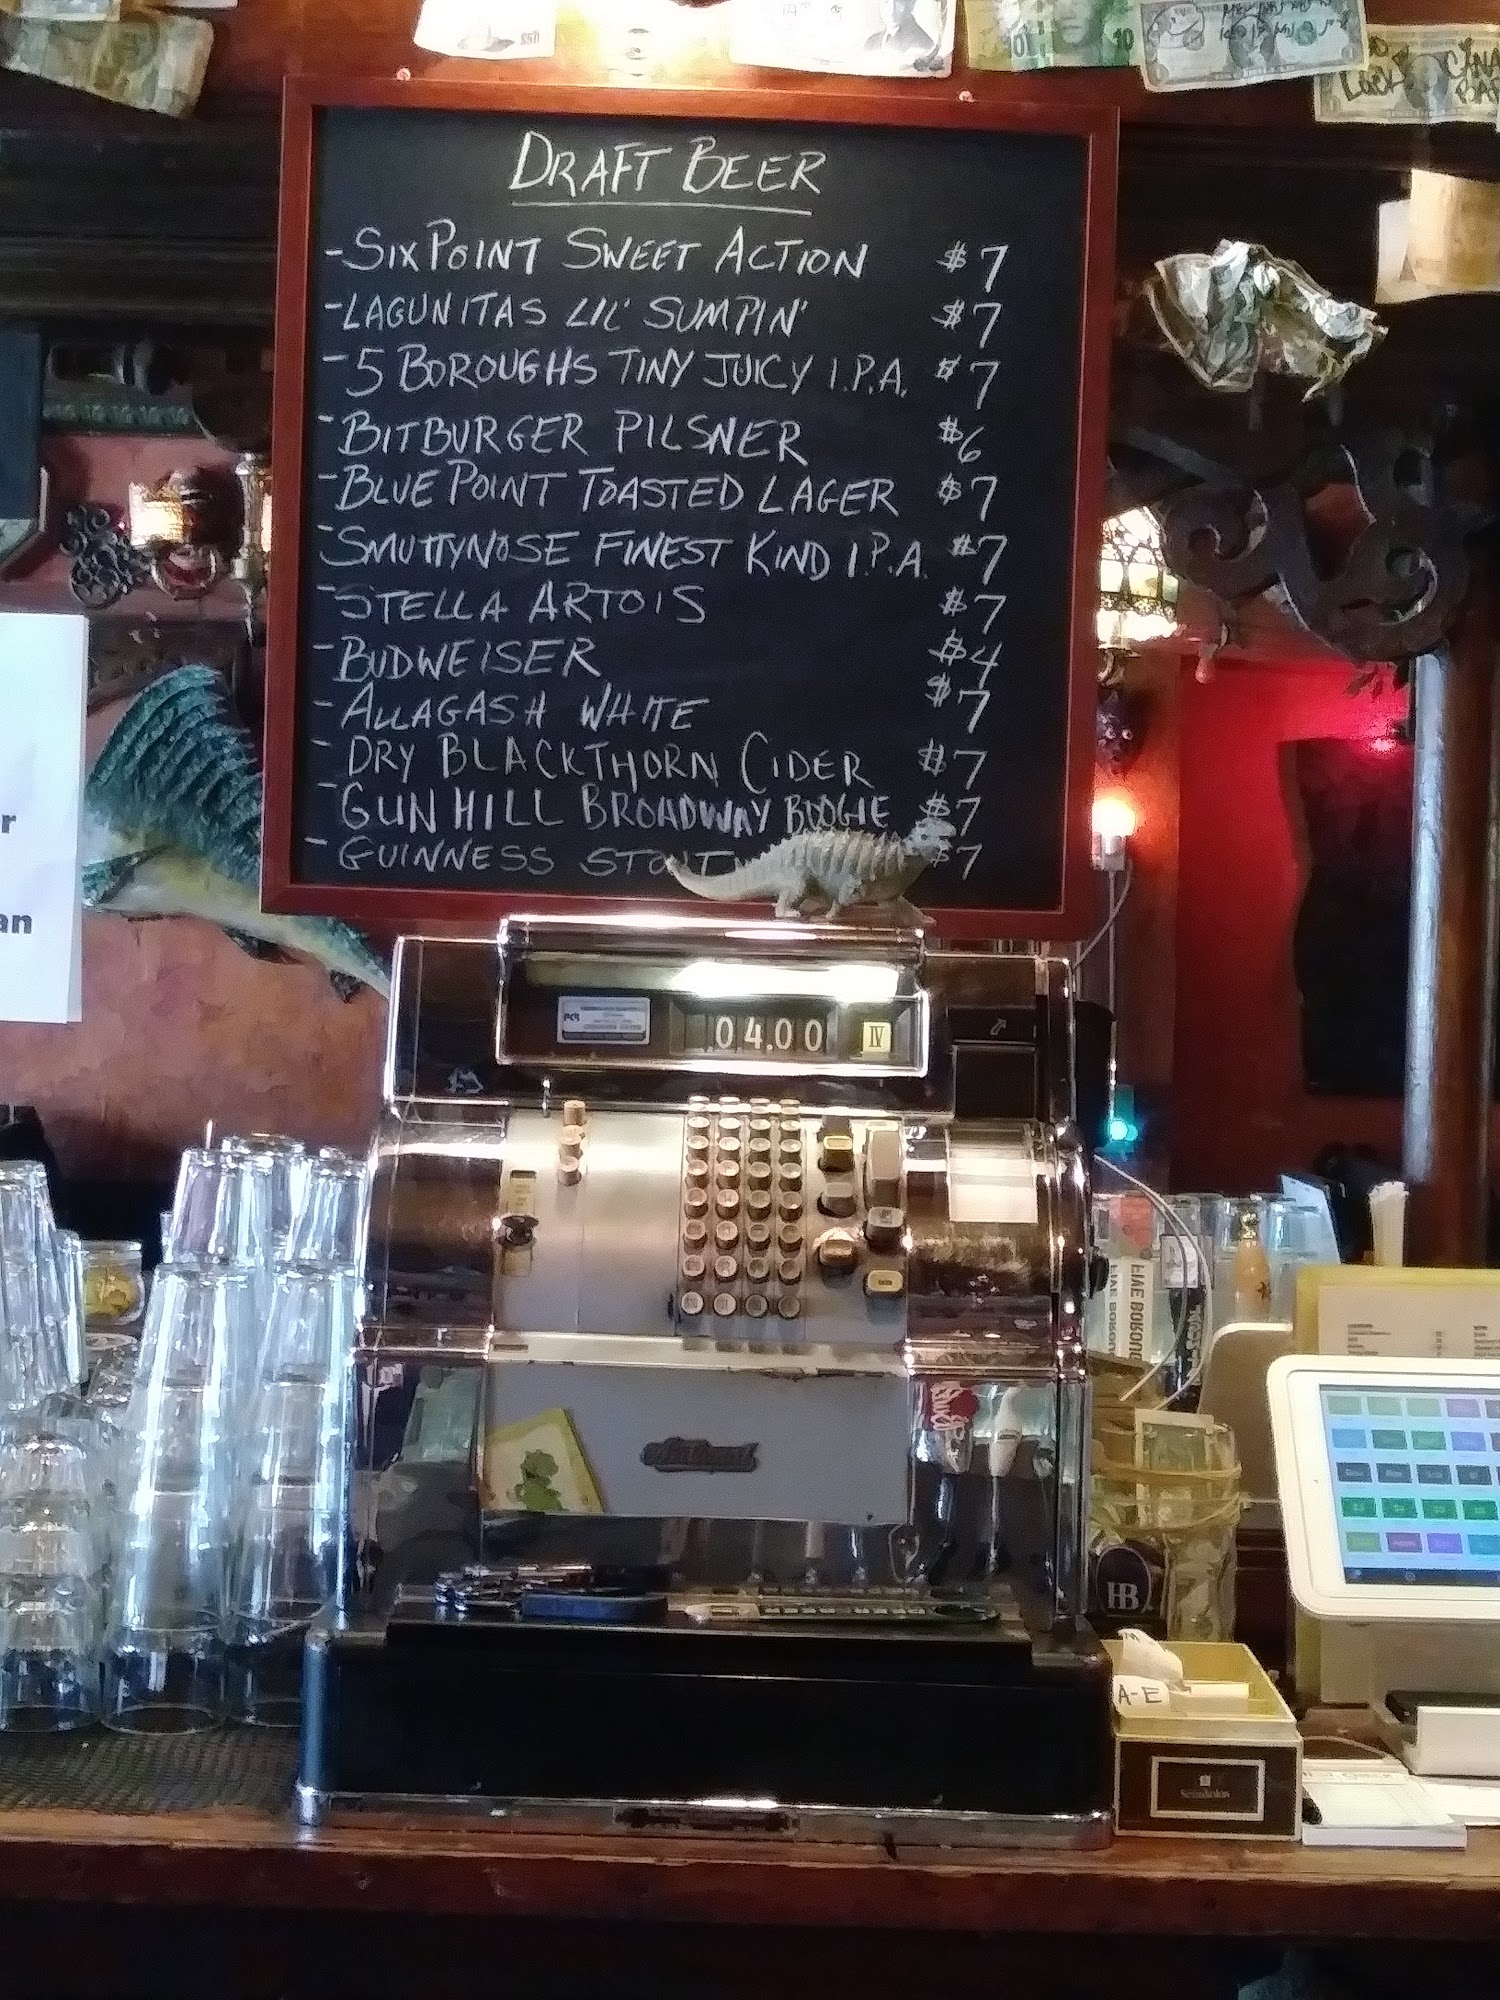 10
10
LUCK
CANA
BAR
DRAFT BEER
- SIXPOINT SWEET ACTION $7
- LAGUNITAS LIL' SUMPIN' $7
- 5 BOROUGHS TINY JUICY I.P.A. $7
- BITBURGER PILSNER $6
- BLUE POINT TOASTED LAGER $7
- SMUTTYNOSE FINEST KIND I.P.A. $7
- STELLA ARTOIS $7
- BUDWEISER $4
- ALLAGASH WHITE $7
- DRY BLACKTHORN CIDER $7
- GUN HILL BROADWAY BOOGIE $7
- GUINNESS STOUT $7
r
an
04.00 IV
FIVE BOROU
HB
A-E